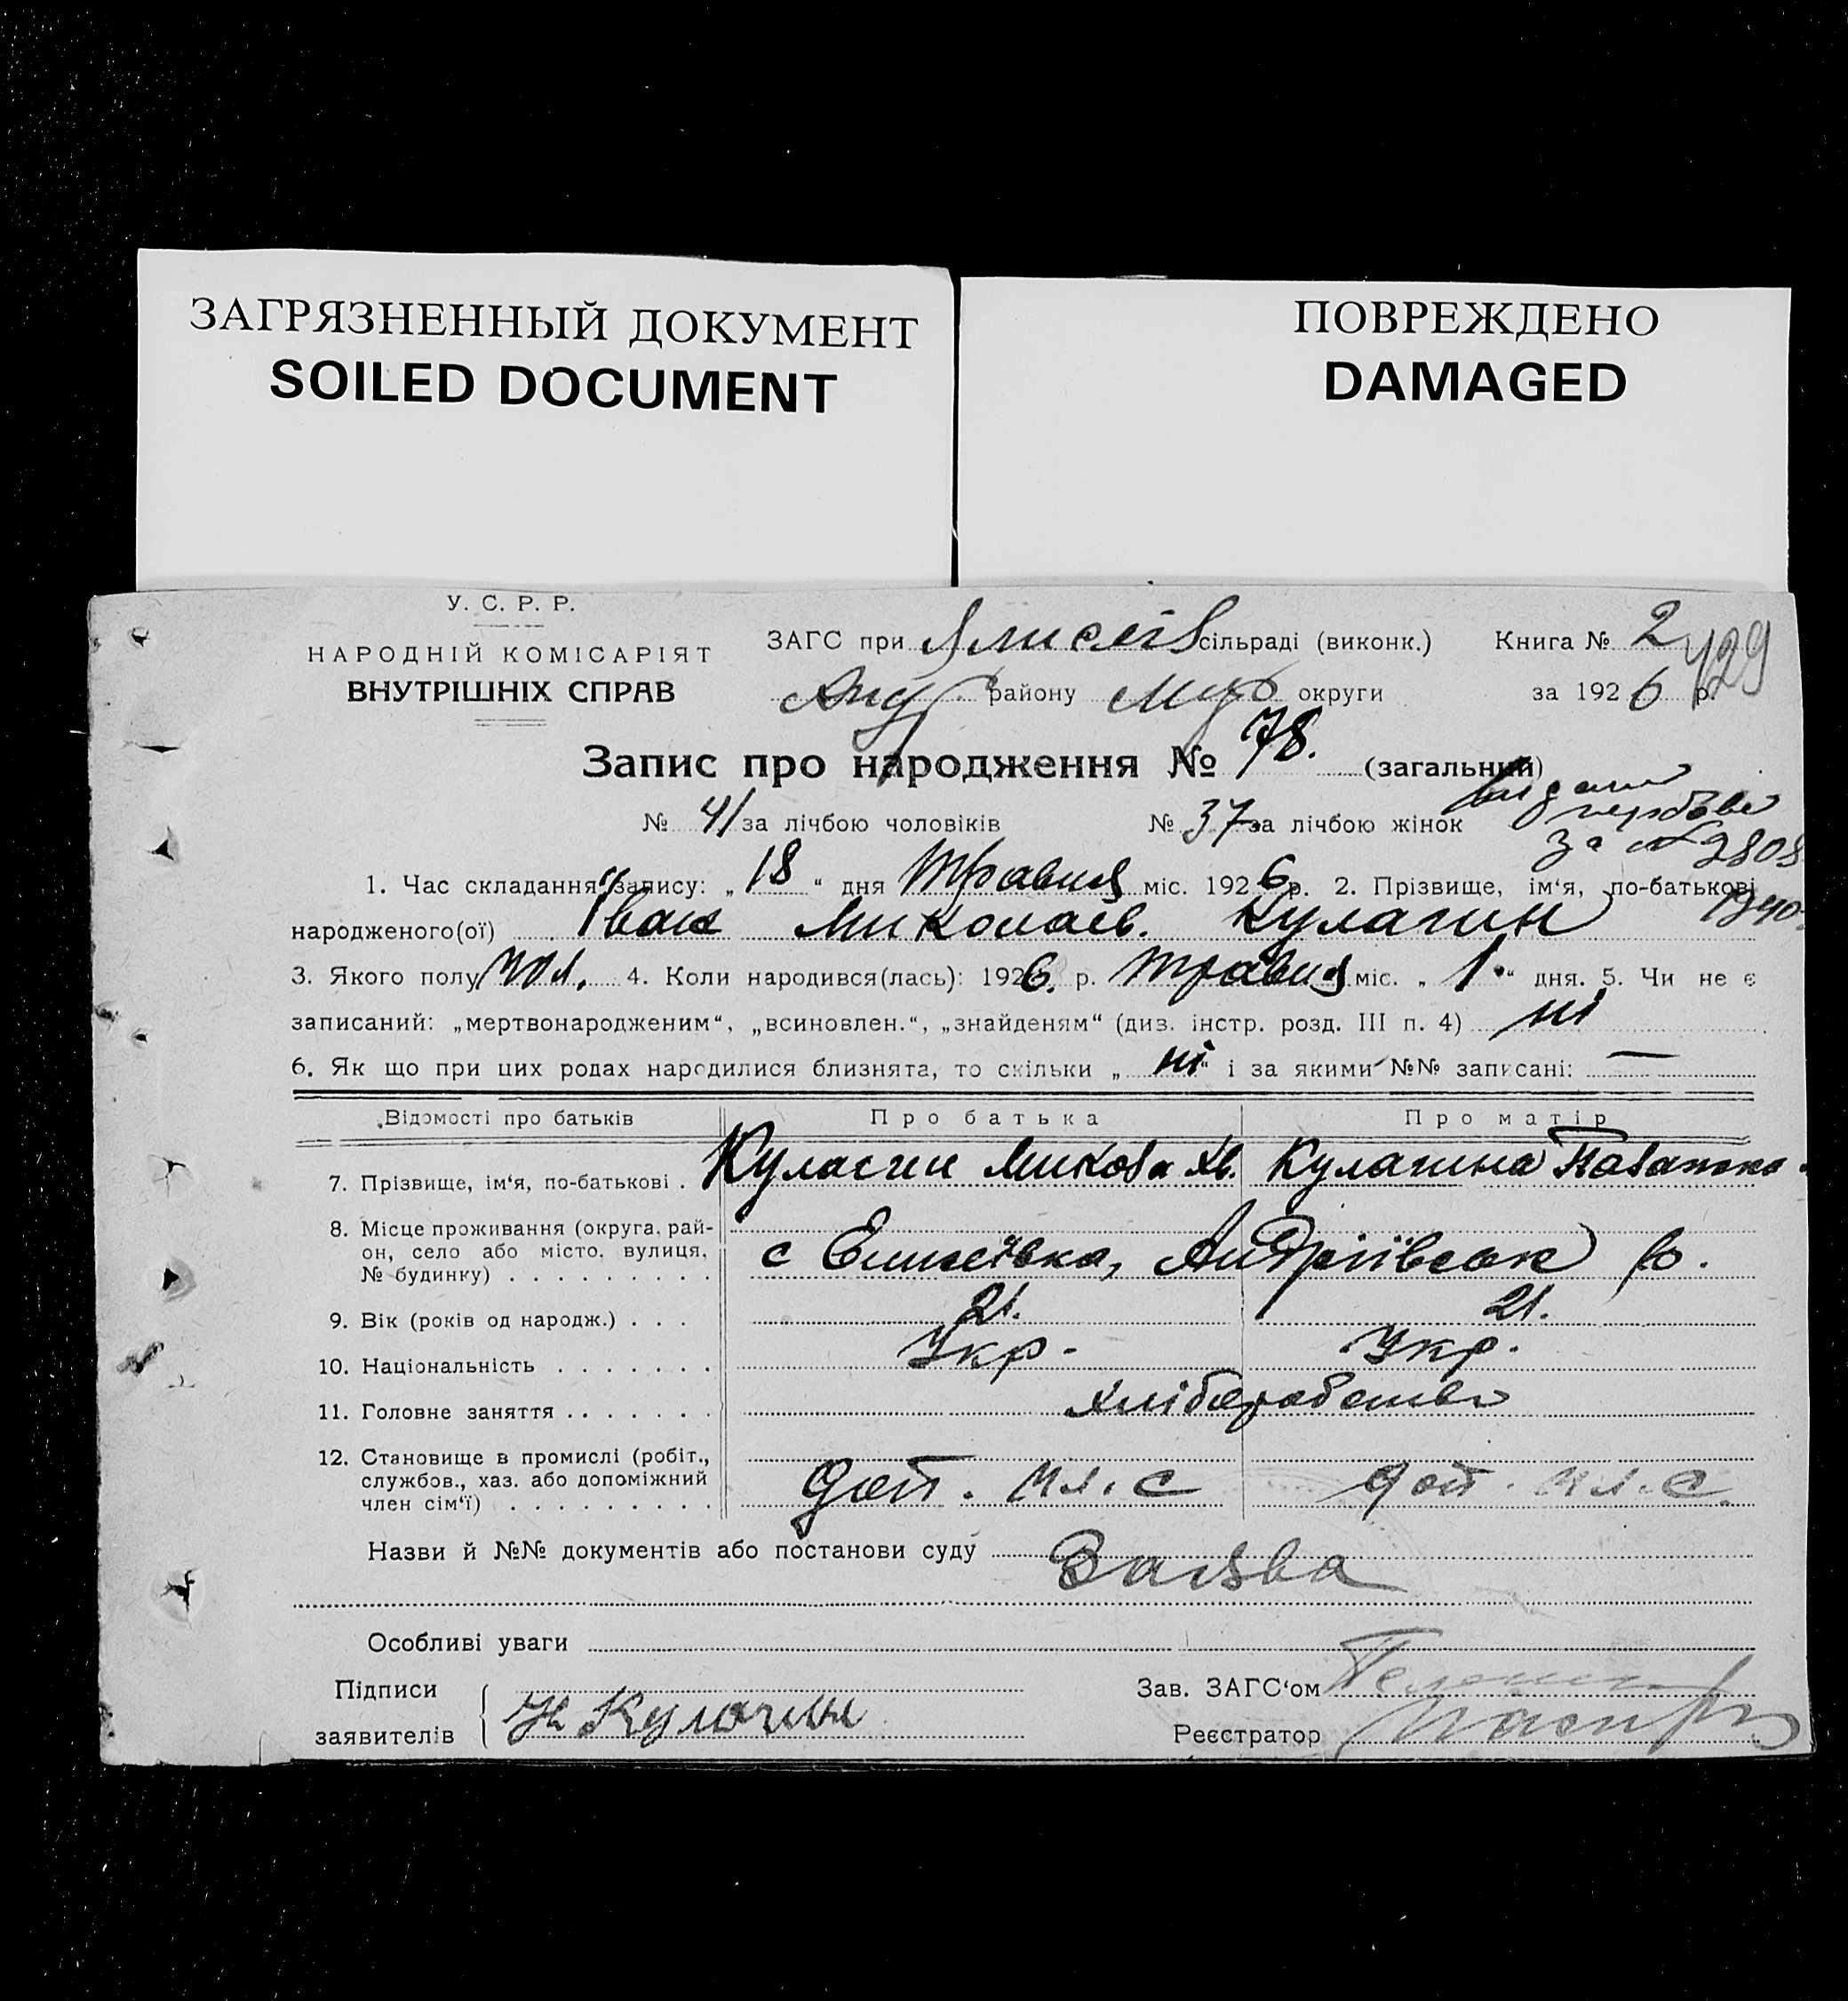 ЗАГРЯЗНЕННЫЙ ДОКУМЕНТ
SOILED DOCUMENT
ПОВРЕЖДЕНО
DAMAGED
У. С. Р. Р.
НАРОДНІЙ КОМІСАРІЯТ
ВНУТРІШНІХ СПРАВ
ЗАГС при сільраді (виконк.) Книга № 2
429
району округи за 1926 р.
Запис про народження № 78. (загальний)
№ 41 за лічбою чоловіків № 37 за лічбою жінок
за № 2808
1940
1. Час складання запису: „18“ дня Травня міс. 1926 р. 2. Прізвище, ім‘я, по-батькові
народженого(ої) Іван Миколаєв. Кулагин
3. Якого полу чол. 4. Коли народився(лась): 1926. р. травня міс. „1“ дня. 5. Чи не є
записаний: „мертвонародженим“, „всиновлен.“, „знайденям“ (див. інстр. розд. III п. 4) ні
6. Як що при цих родах народилися близнята, то скільки „ні“ і за якими №№ записані: —
Відомості про батьків Про батька Про матір
7. Прізвище, ім‘я, по-батькові . Кулагин Микола Кулагина
8. Місце проживання (округа, рай-
он, село або місто, вулиця,
№ будинку) . . . . . . . . . с Андріївськ р.
9. Вік (років од народж.) . . . 21. 21.
10. Національність . . . . . . . Укр. Укр.
11. Головне заняття . . . . . . . хліборобство
12. Становище в промислі (робіт.,
службов., хаз. або допоміжний
член сім‘ї) . . . . . . . . . доп. чл. с доп. чл. с.
Назви й №№ документів або постанови суду Заява
Особливі уваги
Підписи
заявителів Н Кулагин
Зав. ЗАГС‘ом
Реєстратор